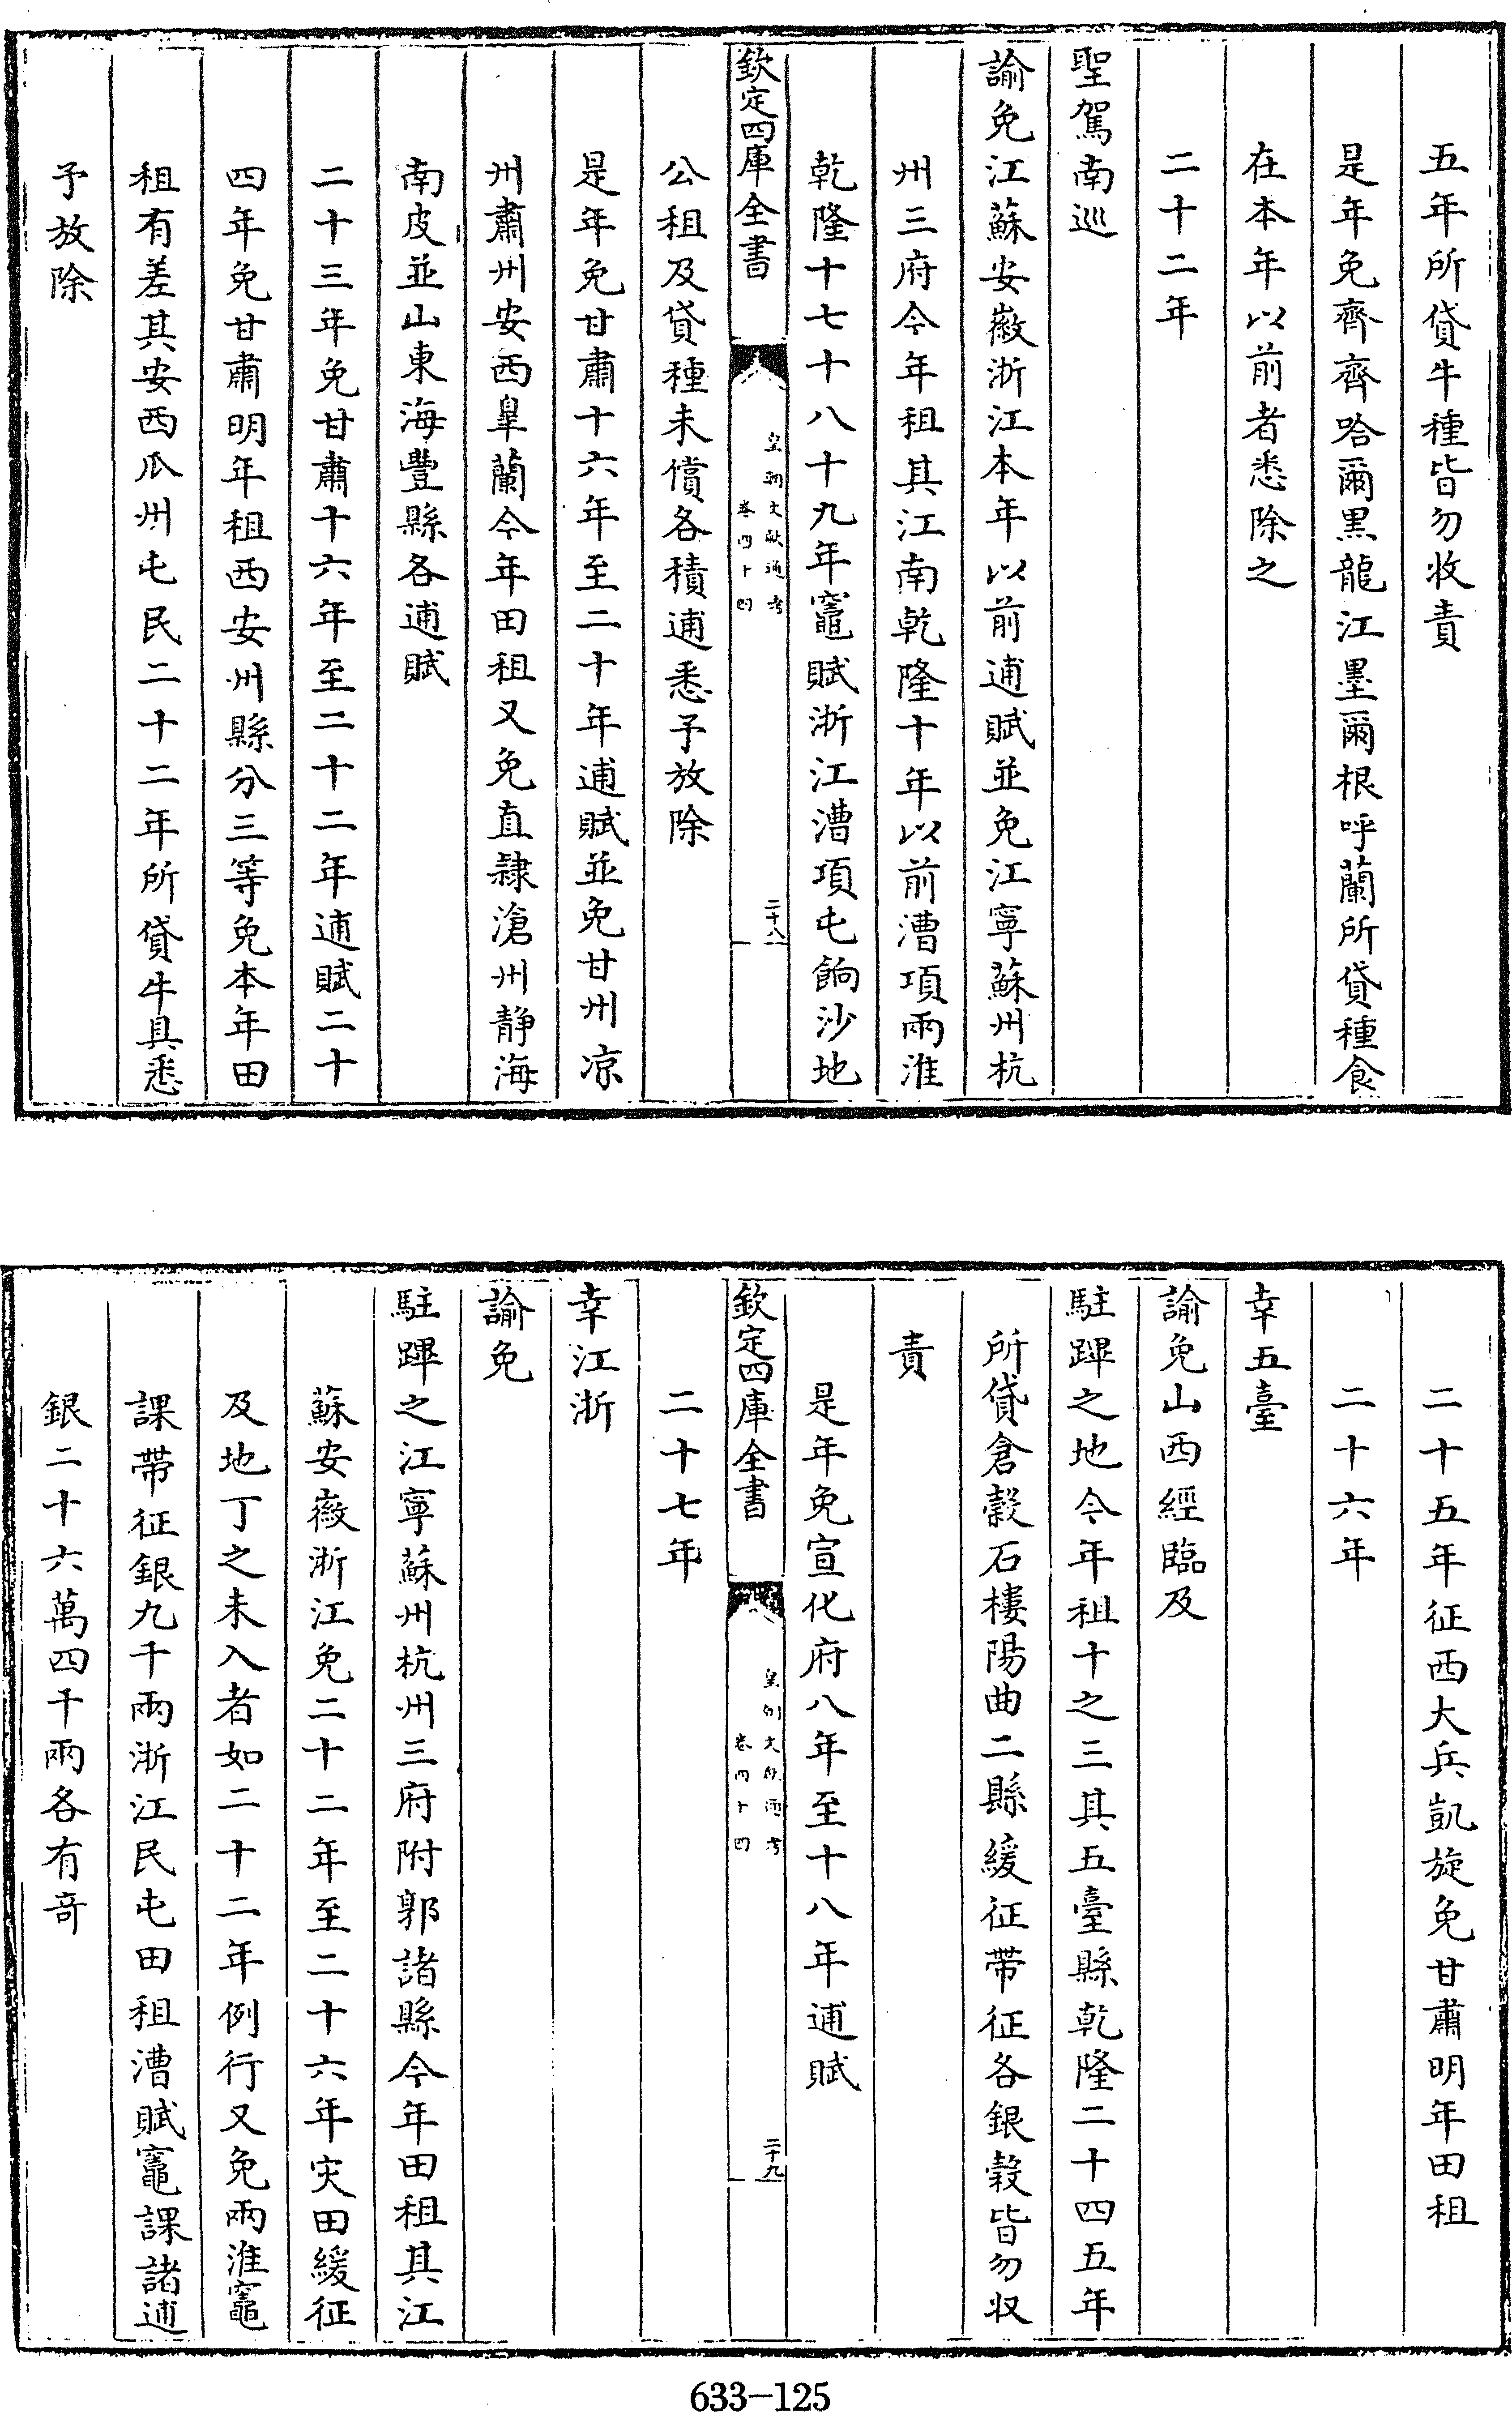 五年所貸牛種皆勿收責
是年免齊齊哈爾黑龍江墨爾根呼蘭所貸種食
在本年以前者悉除之
二十二年
聖駕南巡
諭免江蘇安徽浙江本年以前逋賦並免江寧蘇州杭
州三府今年租其江南乾隆十年以前漕項兩淮
乾隆十七十八十九年竈賦浙江漕項屯餉沙地
欽定四庫全書
皇朝文獻通考
卷四十四
二十八
公租及貸種未償各積逋悉予放除
是年免甘肅十六年至二十年逋賦並免甘州凉
州肅州安西臯蘭今年田租又免直隷滄州靜海
南皮並山東海豐縣各逋賦
二十三年免甘肅十六年至二十二年逋賦二十
四年免甘肅明年租西安州縣分三等免本年田
租有差其安西瓜州屯民二十二年所貸牛具悉
予放除
二十五年征西大兵凱旋免甘肅明年田租
二十六年
幸五臺
諭免山西經臨及
駐蹕之地今年租十之三其五臺縣乾隆二十四五年
所貸倉穀石樓陽曲二縣緩征帶征各銀穀皆勿収
責
是年免宣化府八年至十八年逋賦
欽定四庫全書
皇朝文獻通考
卷四十四
二十九
二十七年
幸江浙
諭免
駐蹕之江寧蘇州杭州三府附郭諸縣今年田租其江
蘇安徽浙江免二十二年至二十六年灾田緩征
及地丁之未入者如二十二年例行又免兩淮竈
課帶征銀九千兩浙江民屯田租漕賦竈課諸逋
銀二十六萬四千兩各有竒
633-125